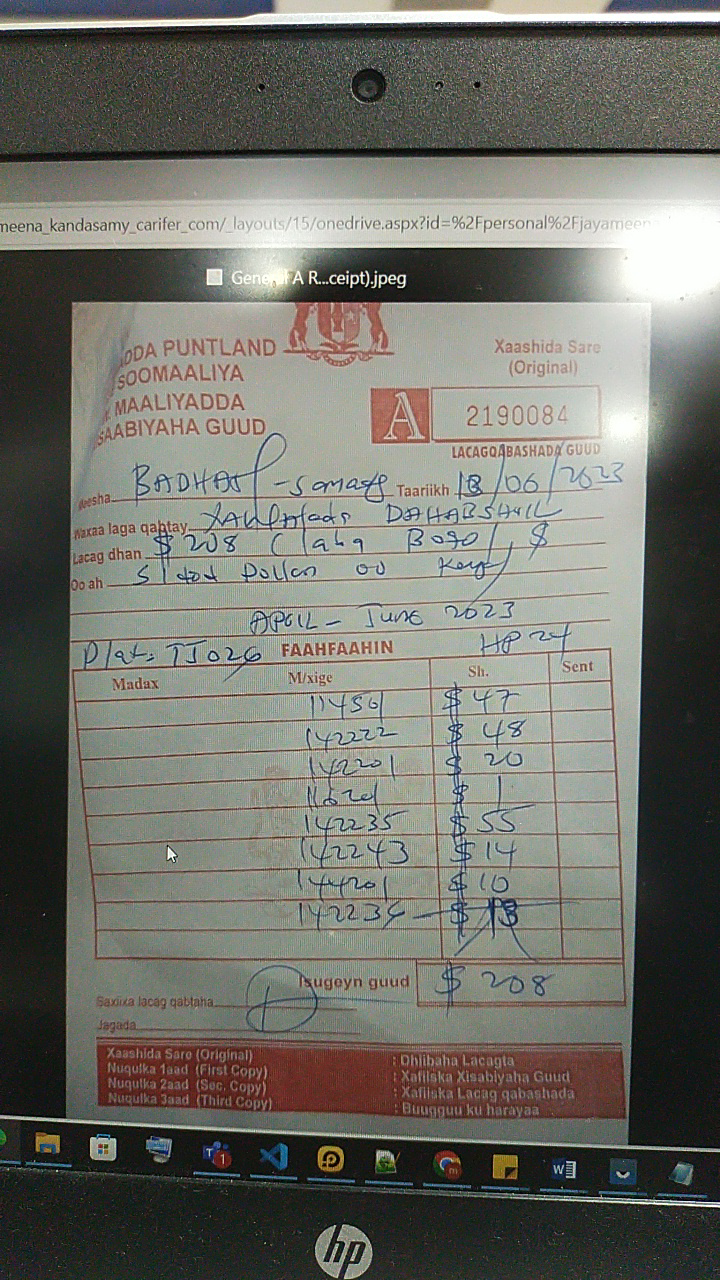 meena_kandasamy_carifer_com/_layouts/15/onedrive.aspx?id=%2Fpersonal%2Fjayameen
A R...ceipt).jpeg
DDA PUNTLAND
SOOMAALIYA
MAALIYADDA
SAABIYAHA GUUD
Xaashida Sare
(Original)
A 2190084
LACAGQABASHADA GUUD
Meesha BADHAN - Taariikh 18/06/2023
Waxaa laga qabtay DAHABSHIIL
Lacag dhan $ 208 ( Laba Boqol $
Oo ah
APRIL - June 2023
Plat: TJ026 FAAHFAAHIN HP 24
Madax M/xige Sh. Sent
11451 $ 47
142222 $ 48
142201 $ 20
$ 1
142235 $ 55
142243 $ 14
144201 $ 10
142234 $ 13
Isugeyn guud $ 208
Saxiixa lacag qabtaha
Jagada
Xaashida Sare (Original) : Dhiibaha Lacagta
Nuqulka 1aad (First Copy) : Xafiiska Xisabiyaha Guud
Nuqulka 2aad (Sec. Copy) : Xafiiska Lacag qabashada
Nuqulka 3aad (Third Copy) : Buugguu ku harayaa
hp